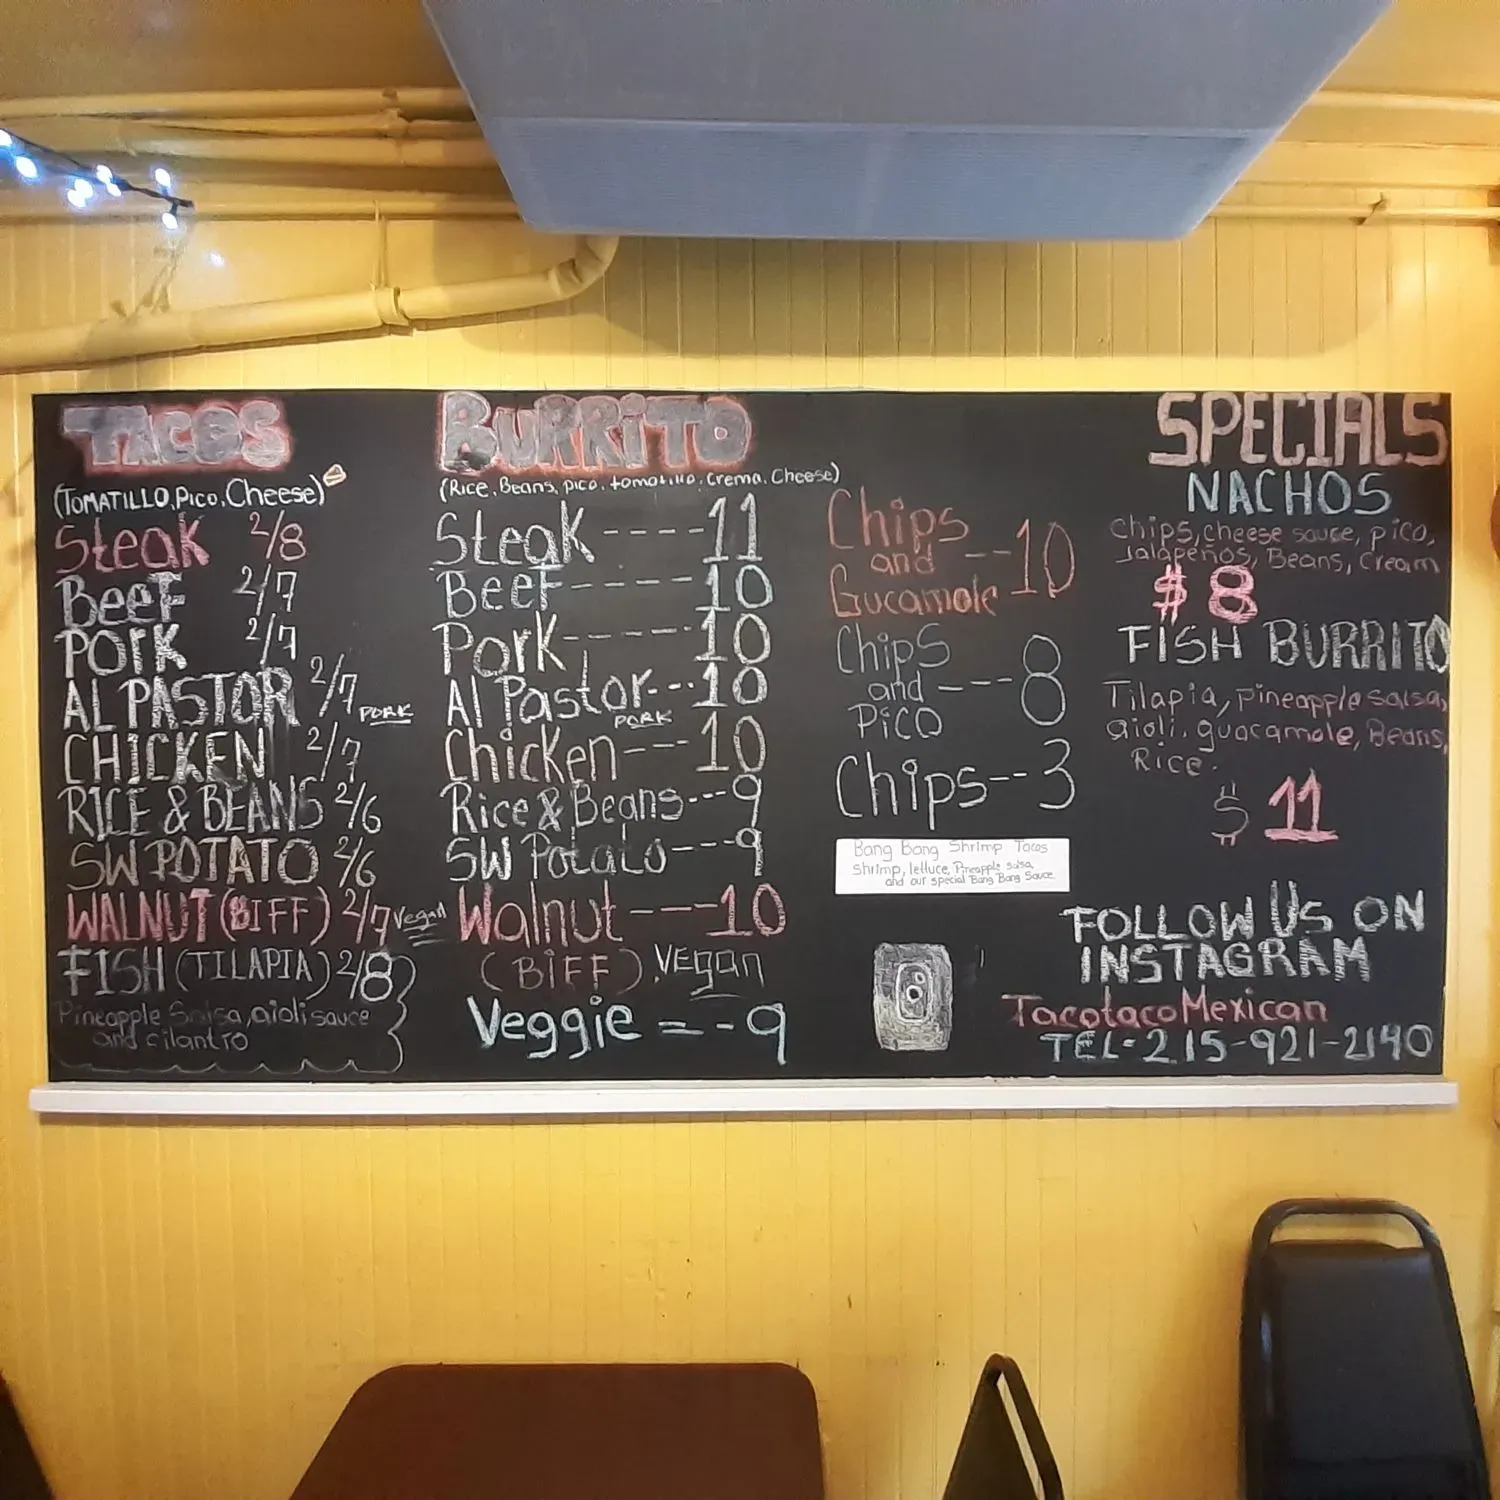 TACOS
(TOMATILLO, Pico, Cheese)
Steak 2/8
BeeF 2/7
PORK 2/7
AL PASTOR 2/7 PORK
CHICKEN 2/7
RICE & BEANS 2/6
SW POTATO 2/6
WALNUT (BIFF) 2/7 Vegan
FISH (TILAPIA) 2/8
Pineapple Salsa, aioli sauce
and cilantro
BURRiTO
(Rice, Beans, pico, tomatillo, Crema, Cheese)
Steak ---- 11
BeeF ----- 10
Pork ----- 10
Al Pastor --- 10
PORK
Chicken --- 10
Rice & Beans --- 9
SW Potato --- 9
Walnut --- 10
(BiFF). VEgan
Veggie = - - 9
Chips
and -- 10
Gucamole
ChipS
and --- 8
PiCO
Chips -- 3
Bang Bang Shrimp Tacos
shrimp, lettuce, Pineapple salsa,
and our special Bang Bang Sauce
SPECIALS
NACHOS
Chips, Cheese sauce, pico,
Jalapeños, Beans, Cream
$8
FISH BURRITO
Tilapia, pineapple salsa,
aioli, guacamole, Beans,
Rice.
$ 11
FOLLOW Us ON
INSTAGRAM
TacotacoMexican
TEL- 215-921-2140